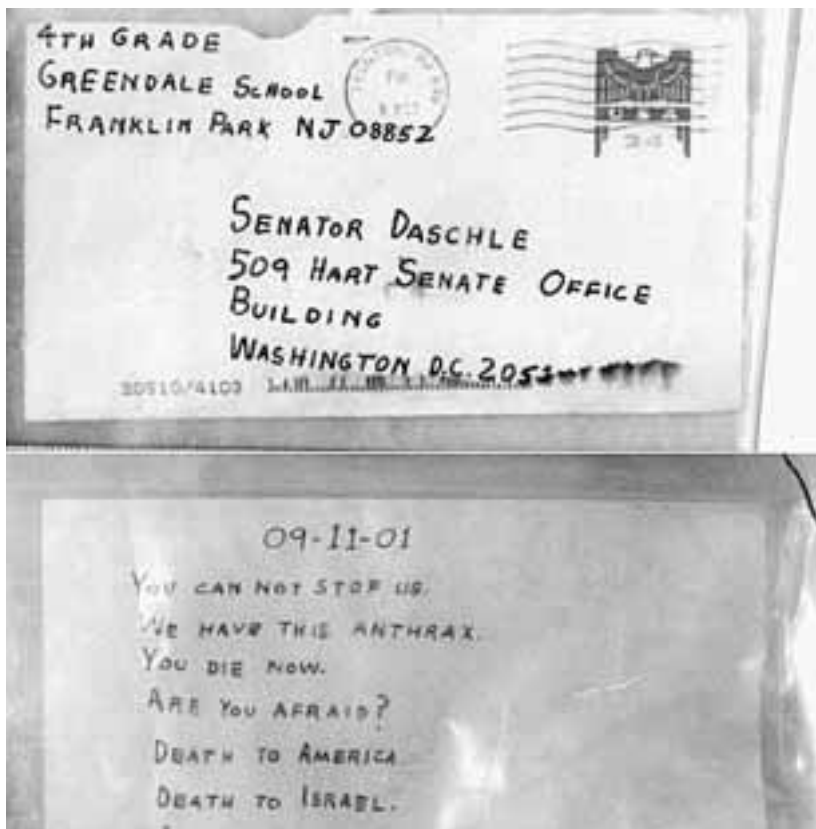 4TH GRADE
GREENDALE SCHOOL
FRANKLIN PARK NJ 08852
SENATOR DASCHLE
509 HART SENATE OFFICE
BUILDING
WASHINGTON D.C. 205
20510/4103
09-11-01
YOU CAN NOT STOP US.
WE HAVE THIS ANTHRAX.
YOU DIE NOW.
ARE YOU AFRAID?
DEATH TO AMERICA
DEATH TO ISRAEL.